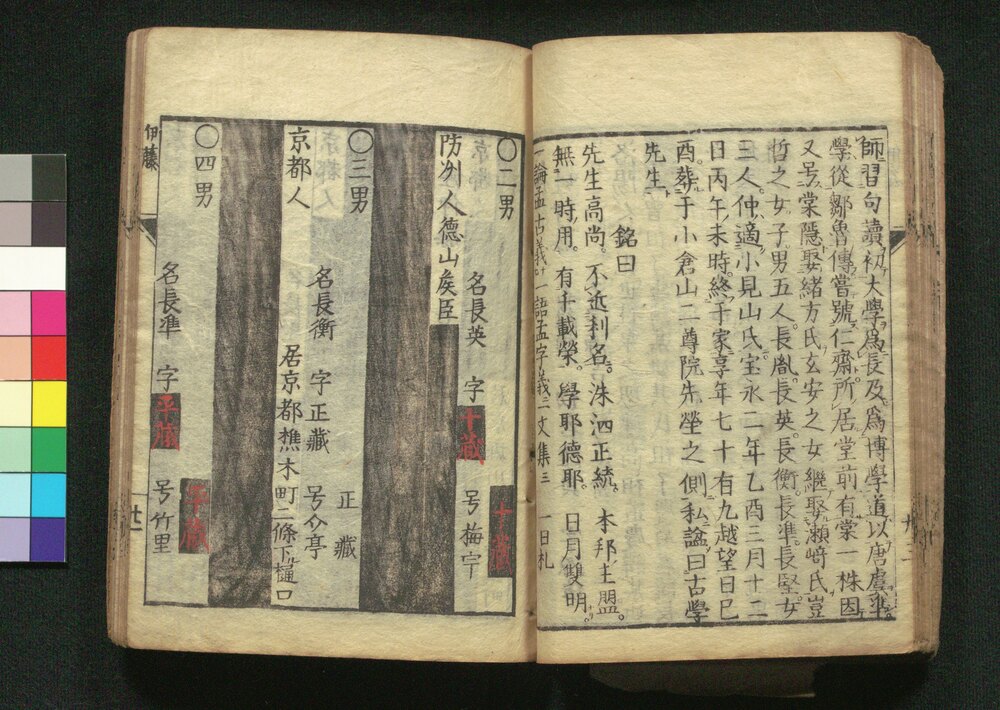 師習句讀初大學爲長及爲博學道以唐虞準
學從鄒魯傳嘗號仁齋所居堂前有棠一株因
又号棠隱娶緒方氏玄安之女繼娶瀨﨑氏豈
哲之女子男五人長胤長英長衡長準長堅女
三人仲適小見山氏宝永二年乙酉三月十二
日丙午未時終于家享年七十有九越望日己
酉葬于小倉山二尊院先塋之側私諡曰古學
先生
銘曰
先生高尚不近利名洙泗正統本邦主盟
無一時用有千載榮學耶德耶日月雙明
論孟古義 語孟字義二 文集三 一日札
〇二男 名長英 字十藏 号梅宇
十藏
防州人德山矦臣
〇三男 名長衡 字正藏 号介亭
正藏
京都人 居京都樵木町二條下樋口
〇四男 名長準 字平藏 号竹里
平藏
伊藤
廿一